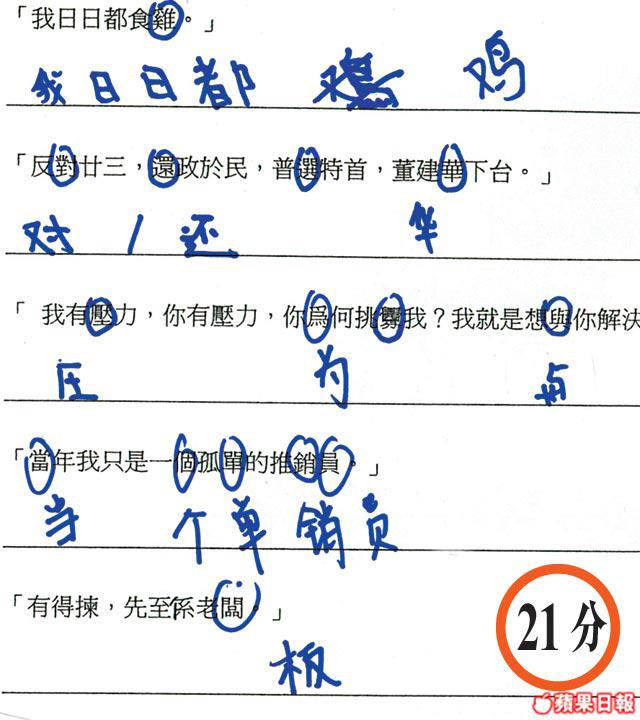 「我日日都食雞。」
我日日都 鸡
「反對廿三，還政於民，普選特首，董建華下台。」
对 / 还 华
「我有壓力，你有壓力，你為何挑釁我？我就是想與你解決
压 为 与
「當年我只是一個孤單的推銷員。」
当 个单销员
「有得揀，先至係老闆。」
板
21分
蘋果日報